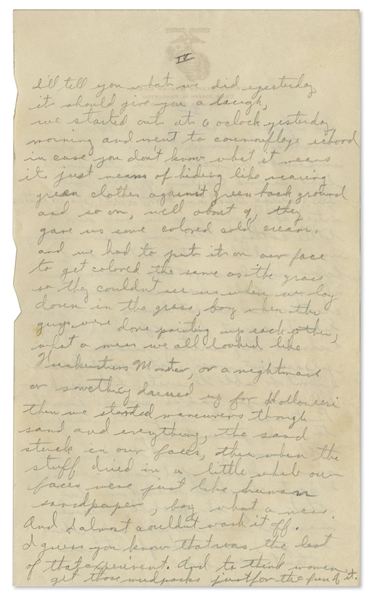 IV
I'll tell you what we did yesterday,
it should give you a laugh,
we started out at 6 oclock yesterday
morning and went to camonflage school
in case you don't know what it means
it just means of hiding like wearing
green clothes against green back ground
and so on, well about 9, they
gave us some colored cold cream.
and we had to put it on our face
to get colored the same as the grass
so they couldn't see us when we lay
down in the grass, boy when the
guys were done painting up each other,
what a mess we all looked like
Monster, or a nightmare
or something dressed up for
then we started maneuvers though
sand and everything, the sand
stuck in our faces, then when the
stuff dried in a little while our
faces were just like human
sandpaper, boy what a mess.
And I almost couldn't wash it off.
I guess you know that was the last
of that experiment. And to think women
get those mudpacks just for the fun of it.